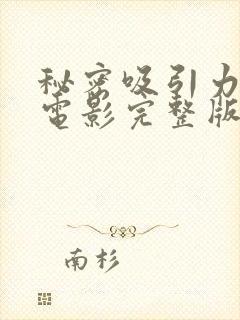 秘密吸引力
电影完整版
南杉